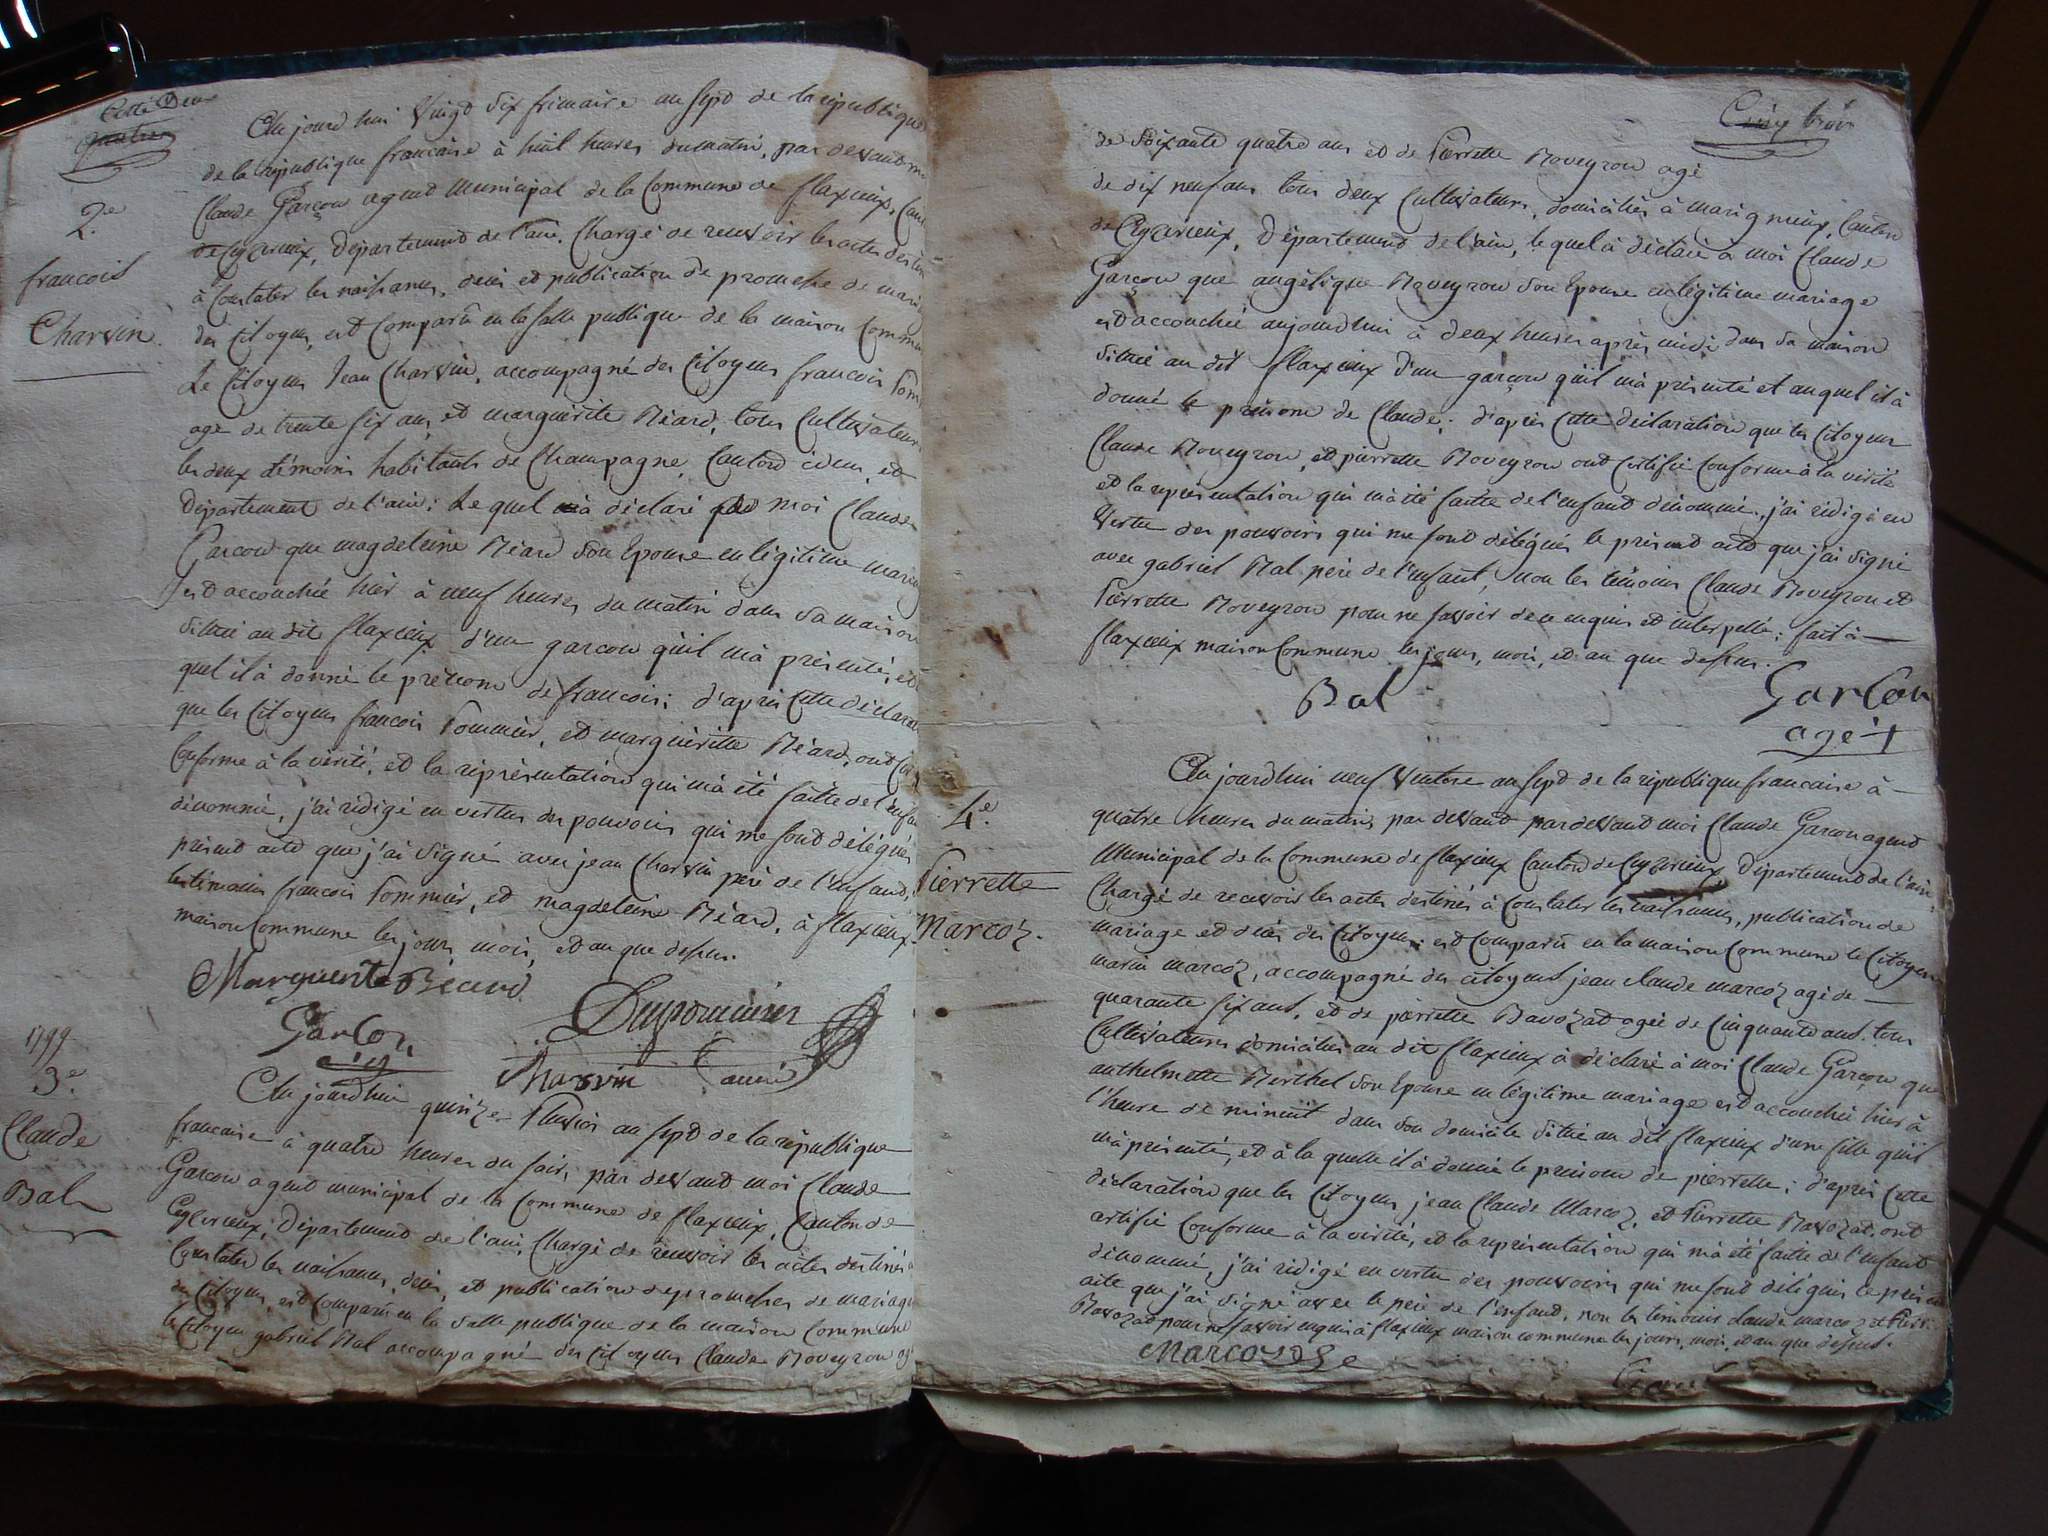 Cotté Deux
quatre
2.e
francois
Charvin.
Ce jourd hui Vingt Six frimaire an sept de la republique
de la republique francaise à huit heures du matin, par devant moi
Claude Garçon agent Municipal de la Commune de flaxieux, Can
de Ceyzerieux, Departement de l'ain, Chargé de recevoir les actes destin
à Constater les naissances, decès et publication de promesse de maria
des Citoyens, est Comparû en la salle publique de la maison Commun
Le Citoyen Jean Charvin, accompagné des Citoyens francois Pom
agé de trente six ans, et marguerite Béard, tous Cultivateurs
les deux témoins habitants de Champagne, Canton idem, et
Département de l'ain; Le quel à déclaré moi Claude
Garcon que magdeleine Béard son Epouse en légitime maria
est accouchée hier à neuf heures du matin dans sa maison
située au dit flaxieux d'un garcon qu'il m'à présenté, et
quel il à donné le prénom de francois; d'après cette déclara
que les Citoyens francois Pommier, et marguerite Béard, ont
Conforme à la vérité, et la représentation qui m'a été faitte de l'enfan
dénommé, j'ai rédigé en vertus des pouvoirs qui me sont délégués
présent acte que j'ai Signé avec jean Charvin père de l'enfant,
les témoins francois Pommier, et magdeleine Béard, à flaxieux
maison Commune les jours, mois, et an que dessus.
Marguerite Beard
Garcon
Dupommier
Charvin
1799
3.e
Claude
Bal
Ce jourd'hui quinze Pluviôs an sept de la république
francaise à quatre heures du soir, par devant moi Claude
Garcon agent municipal de la Commune de flaxieux, Canton de
Ceyzerieux, Département de l'ain, Chargé de recevoir les actes destinés à
Constater les naissances, decès, et publication de promesses de mariage
des Citoyens, est Comparû en la Salle publique de la maison Commune
le Citoyen gabriel Bal accompagné des Citoyens Claude Roveyron agé
Cinq trois
de Soixante quatre ans et de Pierrette Roveyron agé
de dix neuf ans tous deux Cultivateurs, domiciliés à marignieux, Canton
de Ceyzerieux, Département de l'ain, le quel à déclaré à moi Claude
Garçon que angélique Roveyron son Epouse en légitime mariage
est accouchée aujourdhui à deux heures après midi dans sa maison
située au dit flaxieux d'un garçon qu'il m'à présenté et auquel il à
donné le prénom de Claude; d'après cette déclaration que les Citoyens
Claude Roveyron, et pierrette Roveyron ont certifié conforme à la vérité
et la représentation qui m'a été faitte de l'enfant dénommé, j'ai rédigé en
Vertu des pouvoirs qui me sont délégués le présent acte que j'ai signé
avec gabriel Bal père de l'enfant, non les témoins Claude Roveyron et
Pierrette Roveyron pour ne savoir de ce enquis et interpellé; fait à
flaxieux maison Commune les jours, mois, et an que dessus.
Bal
Garcon
agét
4.e
Pierrette
Marcoz.
Ce jourdhui neuf Ventose an sept de la république francaise à
quatre heures du matin, par devant par devant moi Claude Garcon agent
Municipal de la Commune de flaxieux Canton de Ceyzerieux, Département de l'ain
Chargé de recevoir les actes destinés à Constater les naissances, publication de
mariage et decès des Citoyens; est Comparû en la maison Commune le Citoyen
marin marcoz, accompagné des citoyens jean claude marcoz agé de
quarante six ans, et de pierrette Bavozat agée de Cinquante ans, tous
Cultivateurs domiciliés au dit flaxieux à déclaré à moi Claude Garçon que
anthelmette Berthel son Epouse en légitime mariage est accouchée hier à
l'heure de minuit dans son domicile situé au dit flaxieux d'une fille qu'il
m'à présenté, et à la quelle il à donné le prénom de pierrette; d'après cette
déclaration que les Citoyens, jean Claude Marcoz, et Pierrette Bavozat, ont
certifié Conforme à la vérité, et la représentation qui m'a été faitte de l'enfant
dénommé, j'ai rédigé en vertu des pouvoirs qui me sont délégués le présent
acte que j'ai signé avec le père de l'enfant, non les témoins claude marcoz et Pierr
Bavozat pour ne savoir enquis à flaxieux maison commune les jours, mois, et an que dessus.
Marcoz